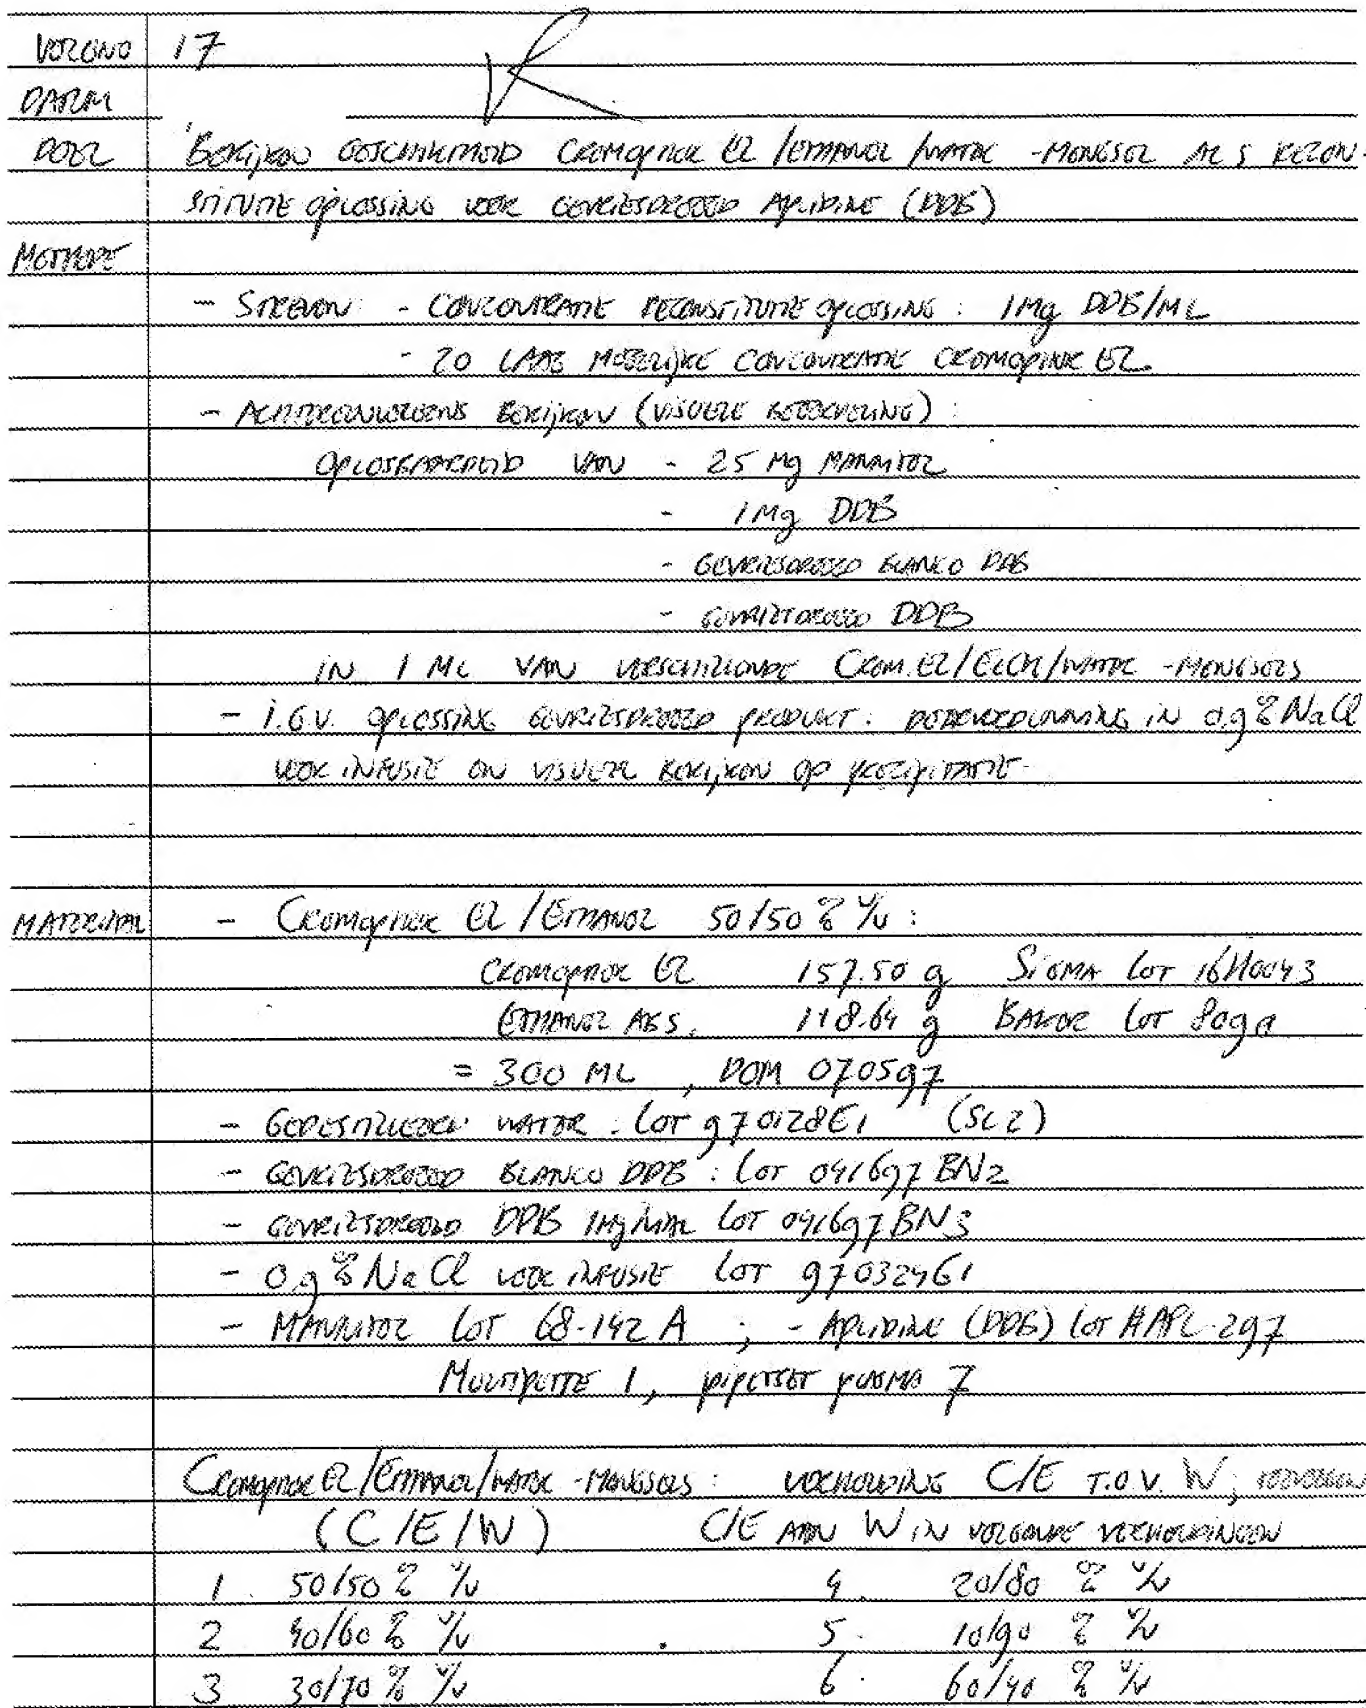 VOLGNO 17
DATUM
DOEL BEKIJKEN GESCHIKTHEID CREMOPHOR EL /ETHANOL /WATER -MENGSEL ALS RECON-
STITUTIE OPLOSSING VOOR GEVRIESDROOGD APLIDINE (DDB)
METHODE
- STREVEN: - CONCENTRATIE RECONSTITUTIE OPLOSSING : 1 Mg DDB/ML
- ZO LAAG MOGELIJKE CONCENTRATIE CREMOPHOR EL.
- ACHTEREENVOLGENS BEKIJKEN (VISUELE BEOORDELING) :
OPLOSBAARHEID VAN - 25 Mg MANNITOL
- 1 Mg DDB
- GEVRIESDROOGD BLANCO DDB
- GEVRIESDROOGD DDB
IN 1 ML VAN VERSCHILLENDE CREM.EL/EtOH/WATER -MENGSELS
- I.G.V. OPLOSSING GEVRIESDROOGD PRODUKT : VERDUNNING IN 0.9 % NaCl
VOOR INFUSIE EN VISUEEL BEKIJKEN OP PRECIPITATIE.
MATERIAAL - CREMOPHOR EL /ETHANOL 50/50 % V/V :
CREMOPHOR EL 157.50 g SIGMA LOT 16H0043
ETHANOL ABS. 118.64 g BAKER LOT 8098
= 300 ML , DOM 070597
- GEDESTILLEERD WATER : LOT 970128E1 (SLZ)
- GEVRIESDROOGD BLANCO DDB : LOT 041697 BN2
- GEVRIESDROOGD DDB 1Mg/VIAL LOT 041697 BN3
- 0.9 % NaCl VOOR INFUSIE LOT 97032461
- MANNITOL LOT 68-142 A ; - APLIDINE (DDB) LOT HAPL-297
MULTIPETTE 1, PIPETSET PLASMA 7
CREMOPHOR EL/ETHANOL/WATER -MENGSELS : VERHOUDING C/E T.O.V. W;
(C/E/W) C/E AAN W IN VOLGENDE VERHOUDINGEN
1. 50/50 % V/V 4. 20/80 % V/V
2 40/60 % V/V 5. 10/90 % V/V
3 30/70 % V/V 6. 60/40 % V/V